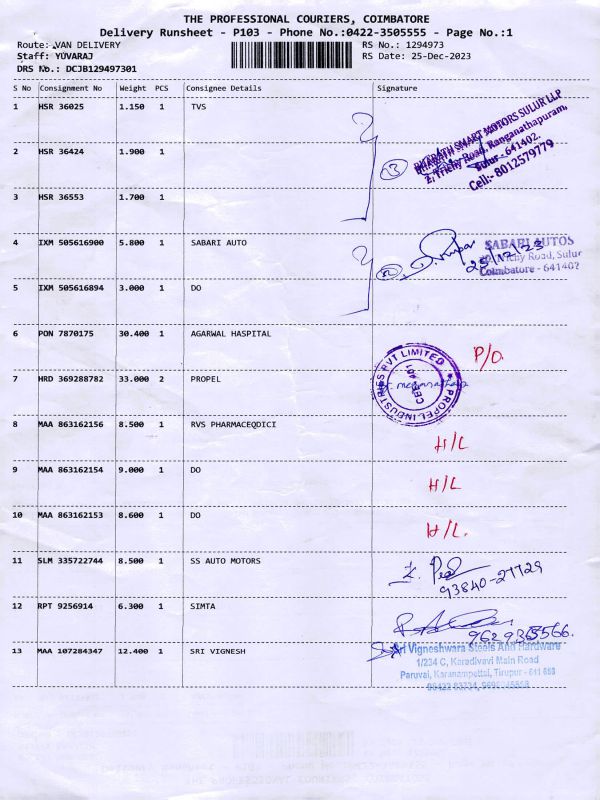 THE PROFESSIONAL COURIERS, COIMBATORE
Delivery Runsheet - P103 - Phone No.:0422-3505555 - Page No.:1
Route: VAN DELIVERY RS No.: 1294973
Staff: YUVARAJ RS Date: 25-Dec-2023
DRS No.: DCJB129497301
S No Consignment No Weight PCS Consignee Details Signature
1 HSR 36025 1.150 1 TVS
BHARATH SMART MOTORS SULUR LLP
2, Trichy Road, Ranganathapuram,
Sulur - 641402.
Cell:- 8012579779
2 HSR 36424 1.900 1
3 HSR 36553 1.700 1
4 IXM 505616900 5.800 1 SABARI AUTO
SABARI AUTOS
Trichy Road, Sulur
Coimbatore - 641402
25/12/23
5 IXM 505616894 3.000 1 DO
6 PON 7870175 30.400 1 AGARWAL HASPITAL
P/O.
7 HRD 369288782 33.000 2 PROPEL
PROPEL INDUSTRIES PVT LIMITED
CBE 401
8 MAA 863162156 8.500 1 RVS PHARMACEQDICI
H/L
9 MAA 863162154 9.000 1 DO
H/L
10 MAA 863162153 8.600 1 DO
H/L.
11 SLM 335722744 8.500 1 SS AUTO MOTORS
93840-27729
12 RPT 9256914 6.300 1 SIMTA
9629365566.
13 MAA 107284347 12.400 1 SRI VIGNESH
Sri Vigneshwara Steels And Hardware
1/234 C, Karadivavi Main Road
Paruvai, Karanampettai, Tirupur - 641 658